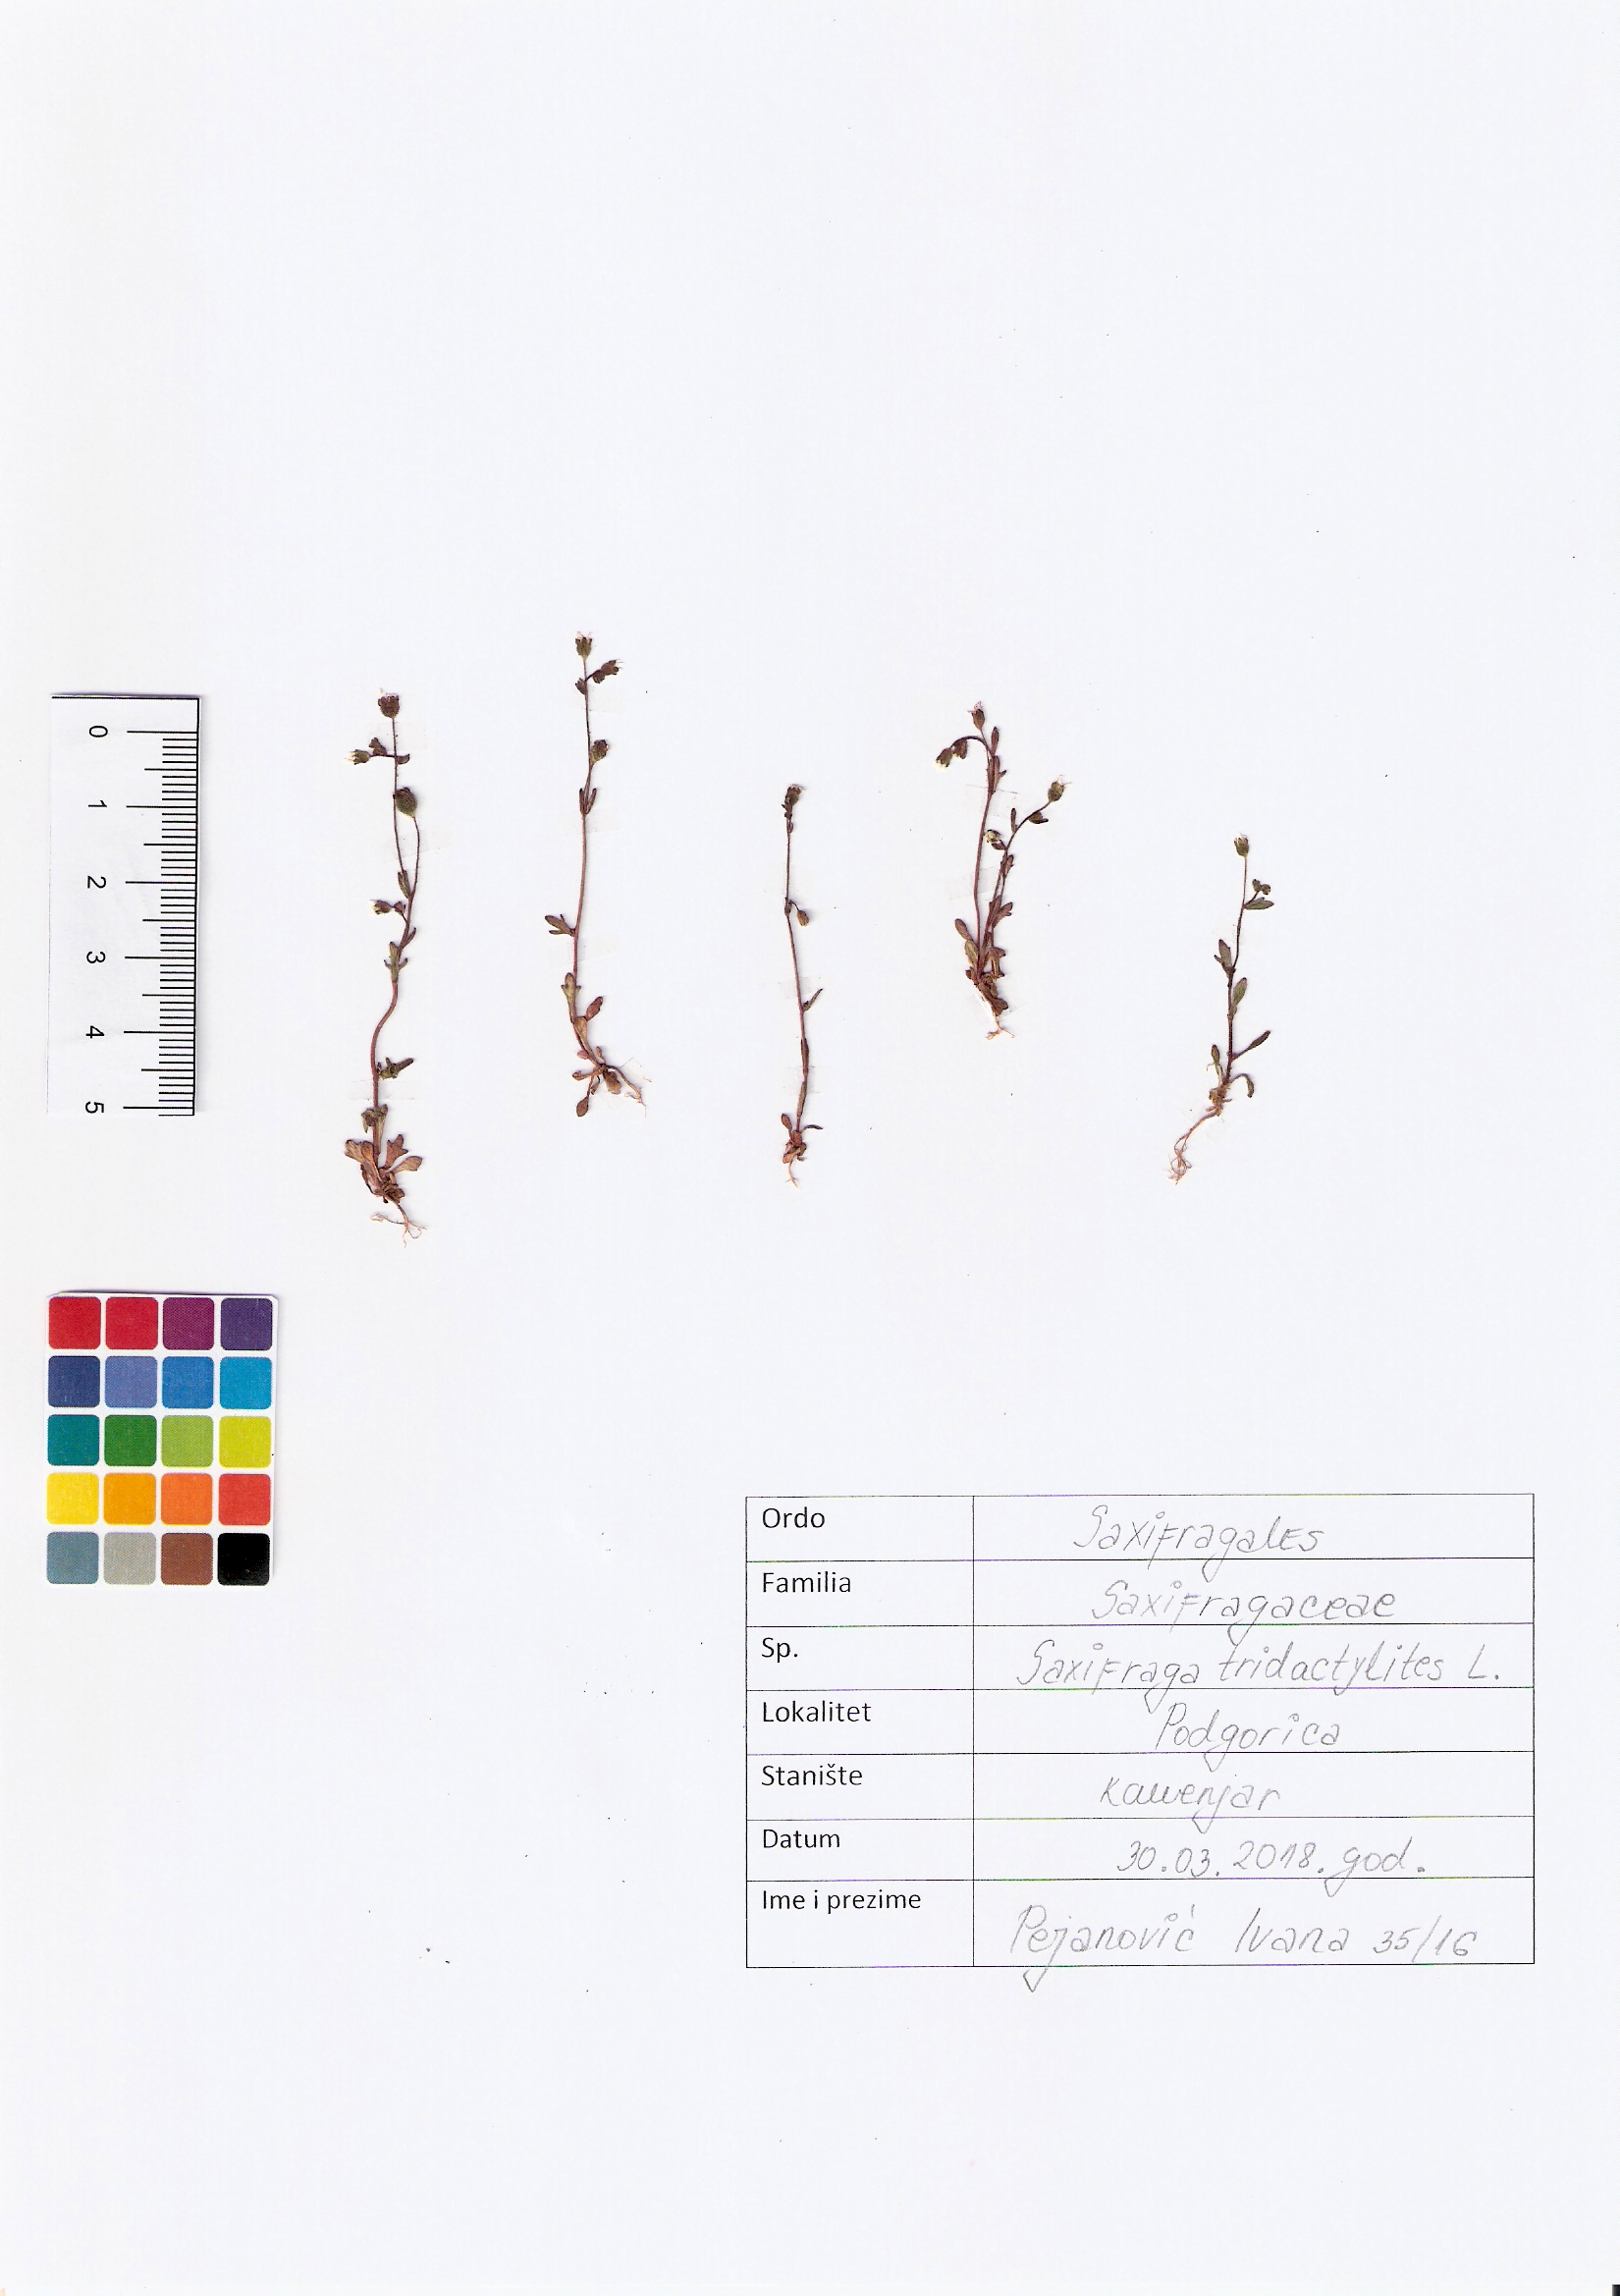 0
1
2
3
4
5
Ordo Saxifragales
Familia Saxifragaceae
Sp. Saxifraga tridactylites L.
Lokalitet Podgorica
Stanište Kamenjar
Datum 30.03.2018. god.
Ime i prezime Pejanović Ivana 35/16